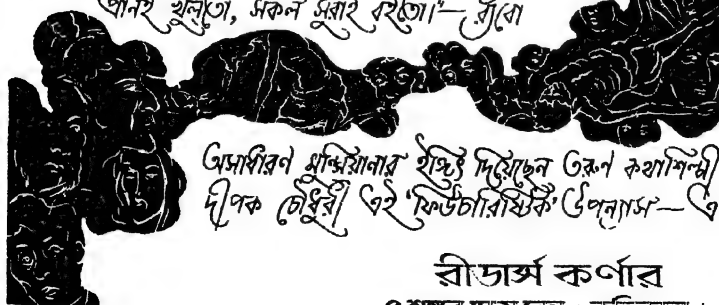 প্রানই খুলতো, সকল সুরাই বইতো।’— র‍্যাঁবো
অসাধারণ মুন্সিয়ানার ইঙ্গিৎ দিয়েছেন তরুণ কথাশিল্পী
দীপক চৌধুরী এই ‘ফিউচারিষ্টিক’ উপন্যাস— এ
রীডার্স কর্ণার